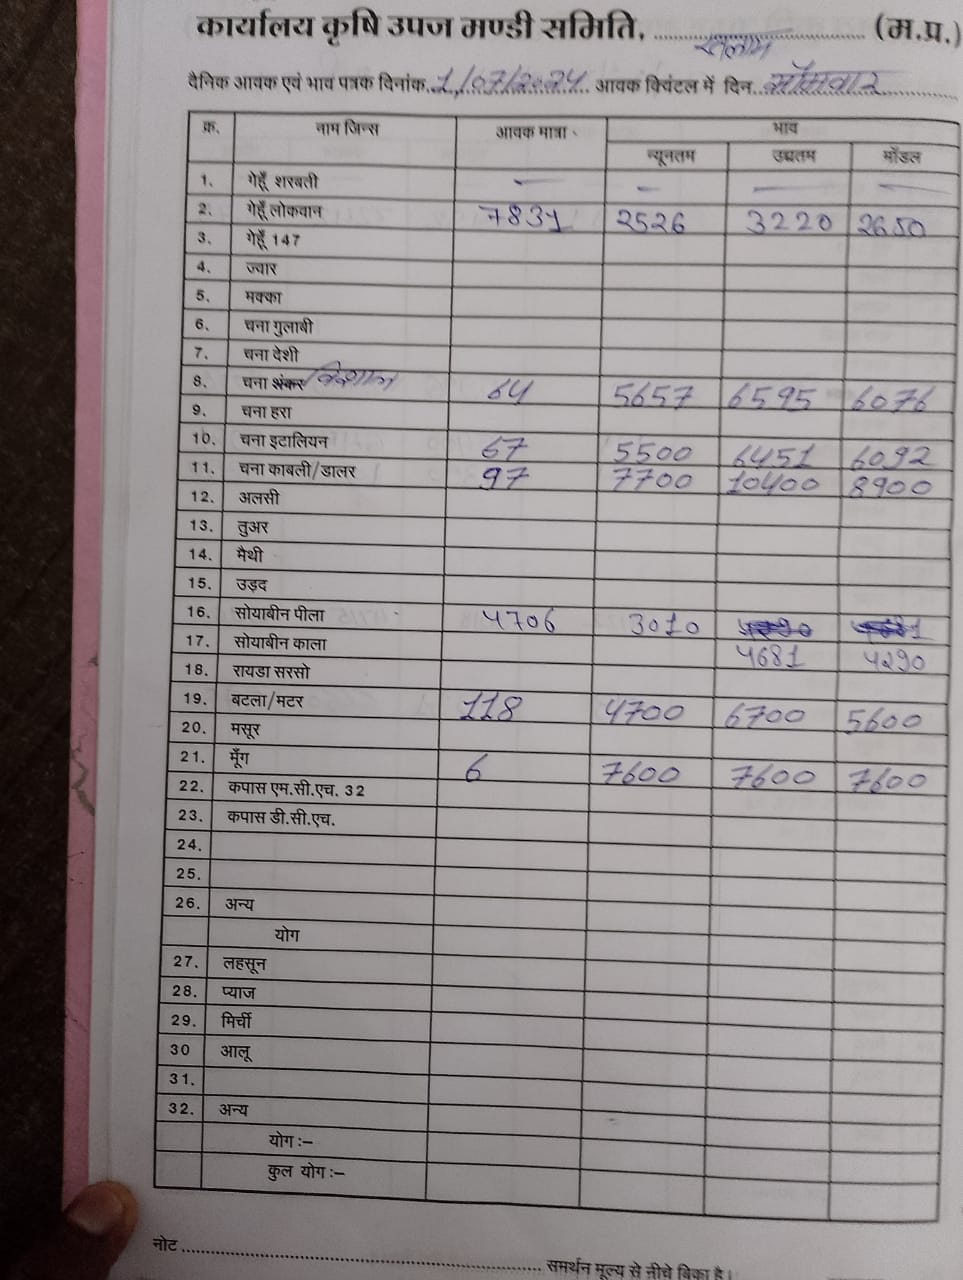 कार्यालय कृषि उपज मण्डी समिति, रतलाम (म.प्र.)
दैनिक आवक एवं भाव पत्रक दिनांक 1/07/2024 आवक क्विंटल में दिन सोमवार
क्र. नाम जिन्स आवक मात्रा भाव
न्यूनतम उच्चतम मॉडल
1. गेहूँ शरबती — — — —
2. गेहूँ लोकवान 7831 2526 3220 2650
3. गेहूँ 147
4. ज्वार
5. मक्का
6. चना गुलाबी
7. चना देशी
8. चना शंकर/विशाल 64 5657 6595 6076
9. चना हरा
10. चना इटालियन 67 5500 6451 6092
11. चना काबली/डालर 97 7700 10400 8900
12. अलसी
13. तुअर
14. मैथी
15. उड़द
16. सोयाबीन पीला 4706 3010
17. सोयाबीन काला 4681 4290
18. रायडा सरसो
19. बटला/मटर 118 4700 6700 5600
20. मसूर
21. मूँग 6 7600 7600 7600
22. कपास एम.सी.एच. 32
23. कपास डी.सी.एच.
24.
25.
26. अन्य
योग
27. लहसून
28. प्याज
29. मिर्ची
30 आलू
31.
32. अन्य
योग :–
कुल योग :–
नोट
समर्थन मूल्य से नीचे बिका है।